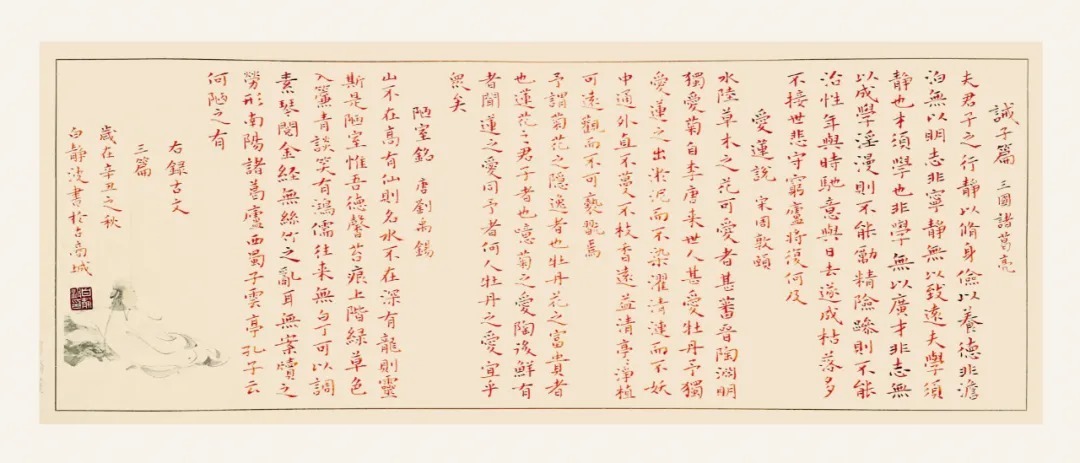 誡子篇 三國諸葛亮
夫君子之行靜以脩身儉以養德非澹
泊無以明志非寧靜無以致遠夫學須
靜也才須學也非學無以廣才非志無
以成學淫漫則不能勵精險躁則不能
治性年與時馳意與日去遂成枯落多
不接世悲守窮廬將復何及
愛蓮說 宋周敦頤
水陸草木之花可愛者甚蕃晉陶淵明
獨愛菊自李唐来世人甚愛牡丹予獨
愛蓮之出淤泥而不染濯清漣而不妖
中通外直不蔓不枝香遠益清亭〻淨植
可遠觀而不可褻翫焉
予謂菊花之隱逸者也牡丹花之富貴者
也蓮花之君子者也噫菊之愛陶後鮮有
者聞蓮之愛同予者何人牡丹之愛宜乎
眾矣
陋室銘 唐劉禹錫
山不在高有仙則名水不在深有龍則靈
斯是陋室惟吾德馨苔痕上階緑草色
入簾青談笑有鴻儒往来無白丁可以調
素琴閱金經無絲竹之亂耳無案牘之
勞形南陽諸葛廬西蜀子雲亭孔子云
何陋之有
右錄古文
三篇
歲在辛丑之秋
白靜波書於古高城